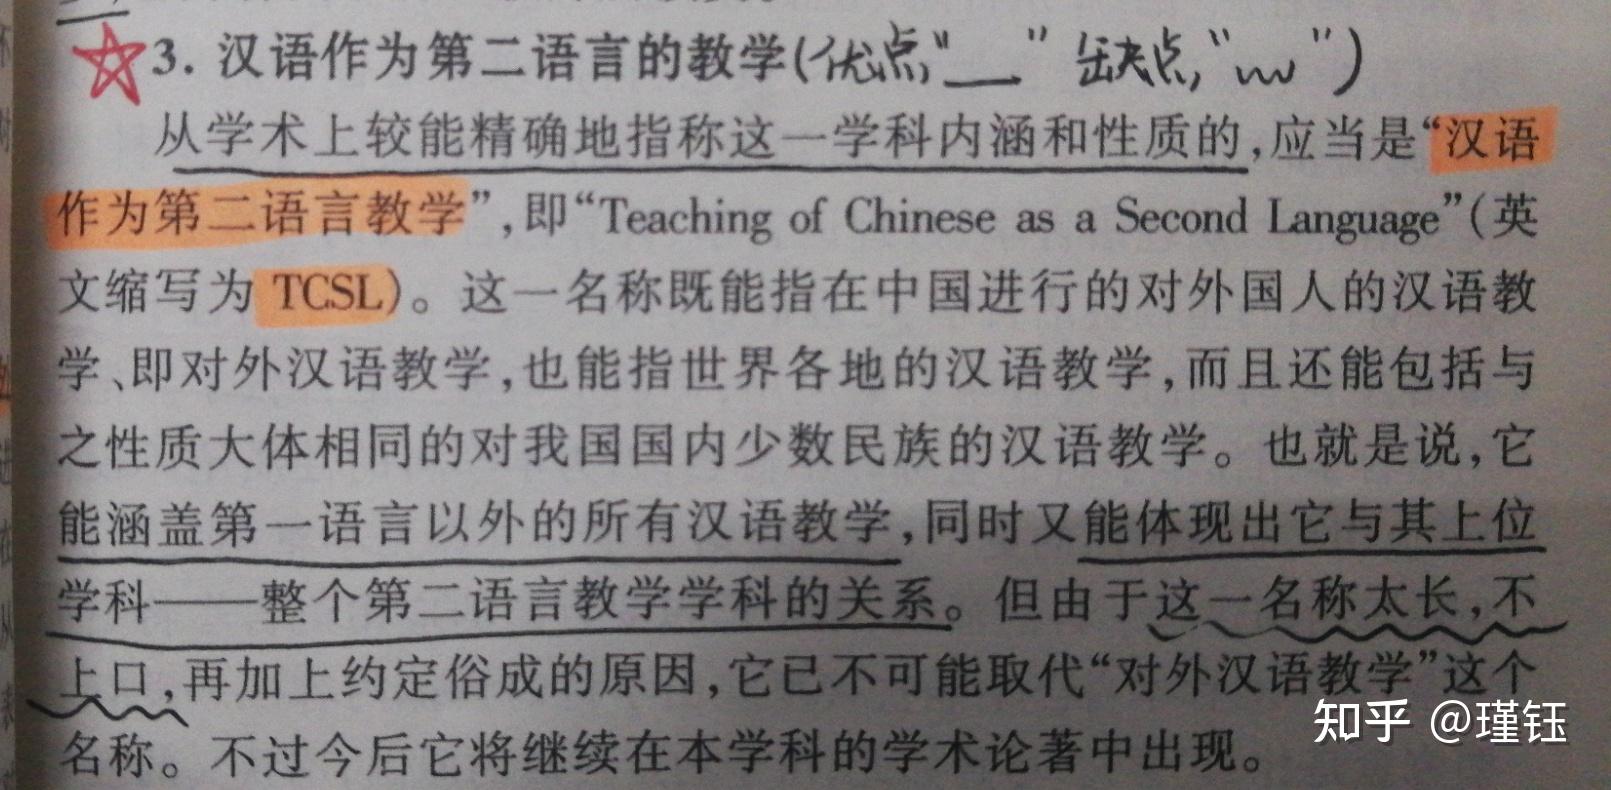 3. 汉语作为第二语言的教学(优点,“__” 缺点,“﹏”)
从学术上较能精确地指称这一学科内涵和性质的,应当是“汉语
作为第二语言教学”,即“Teaching of Chinese as a Second Language”(英
文缩写为 TCSL)。这一名称既能指在中国进行的对外国人的汉语教
学、即对外汉语教学,也能指世界各地的汉语教学,而且还能包括与
之性质大体相同的对我国国内少数民族的汉语教学。也就是说,它
能涵盖第一语言以外的所有汉语教学,同时又能体现出它与其上位
学科——整个第二语言教学学科的关系。但由于这一名称太长,不
上口,再加上约定俗成的原因,它已不可能取代“对外汉语教学”这个
名称。不过今后它将继续在本学科的学术论著中出现。
知乎 @瑾钰